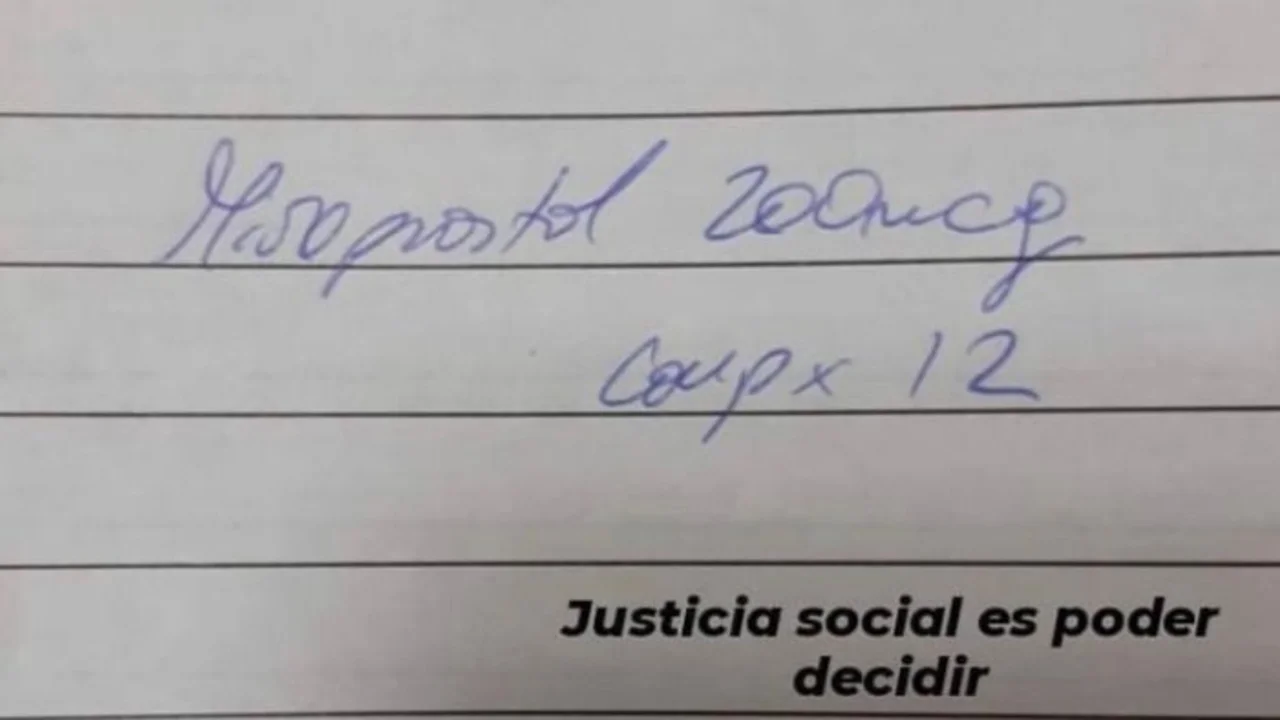 Misoprostol 200mcg
Comp x 12
Justicia social es poder
decidir